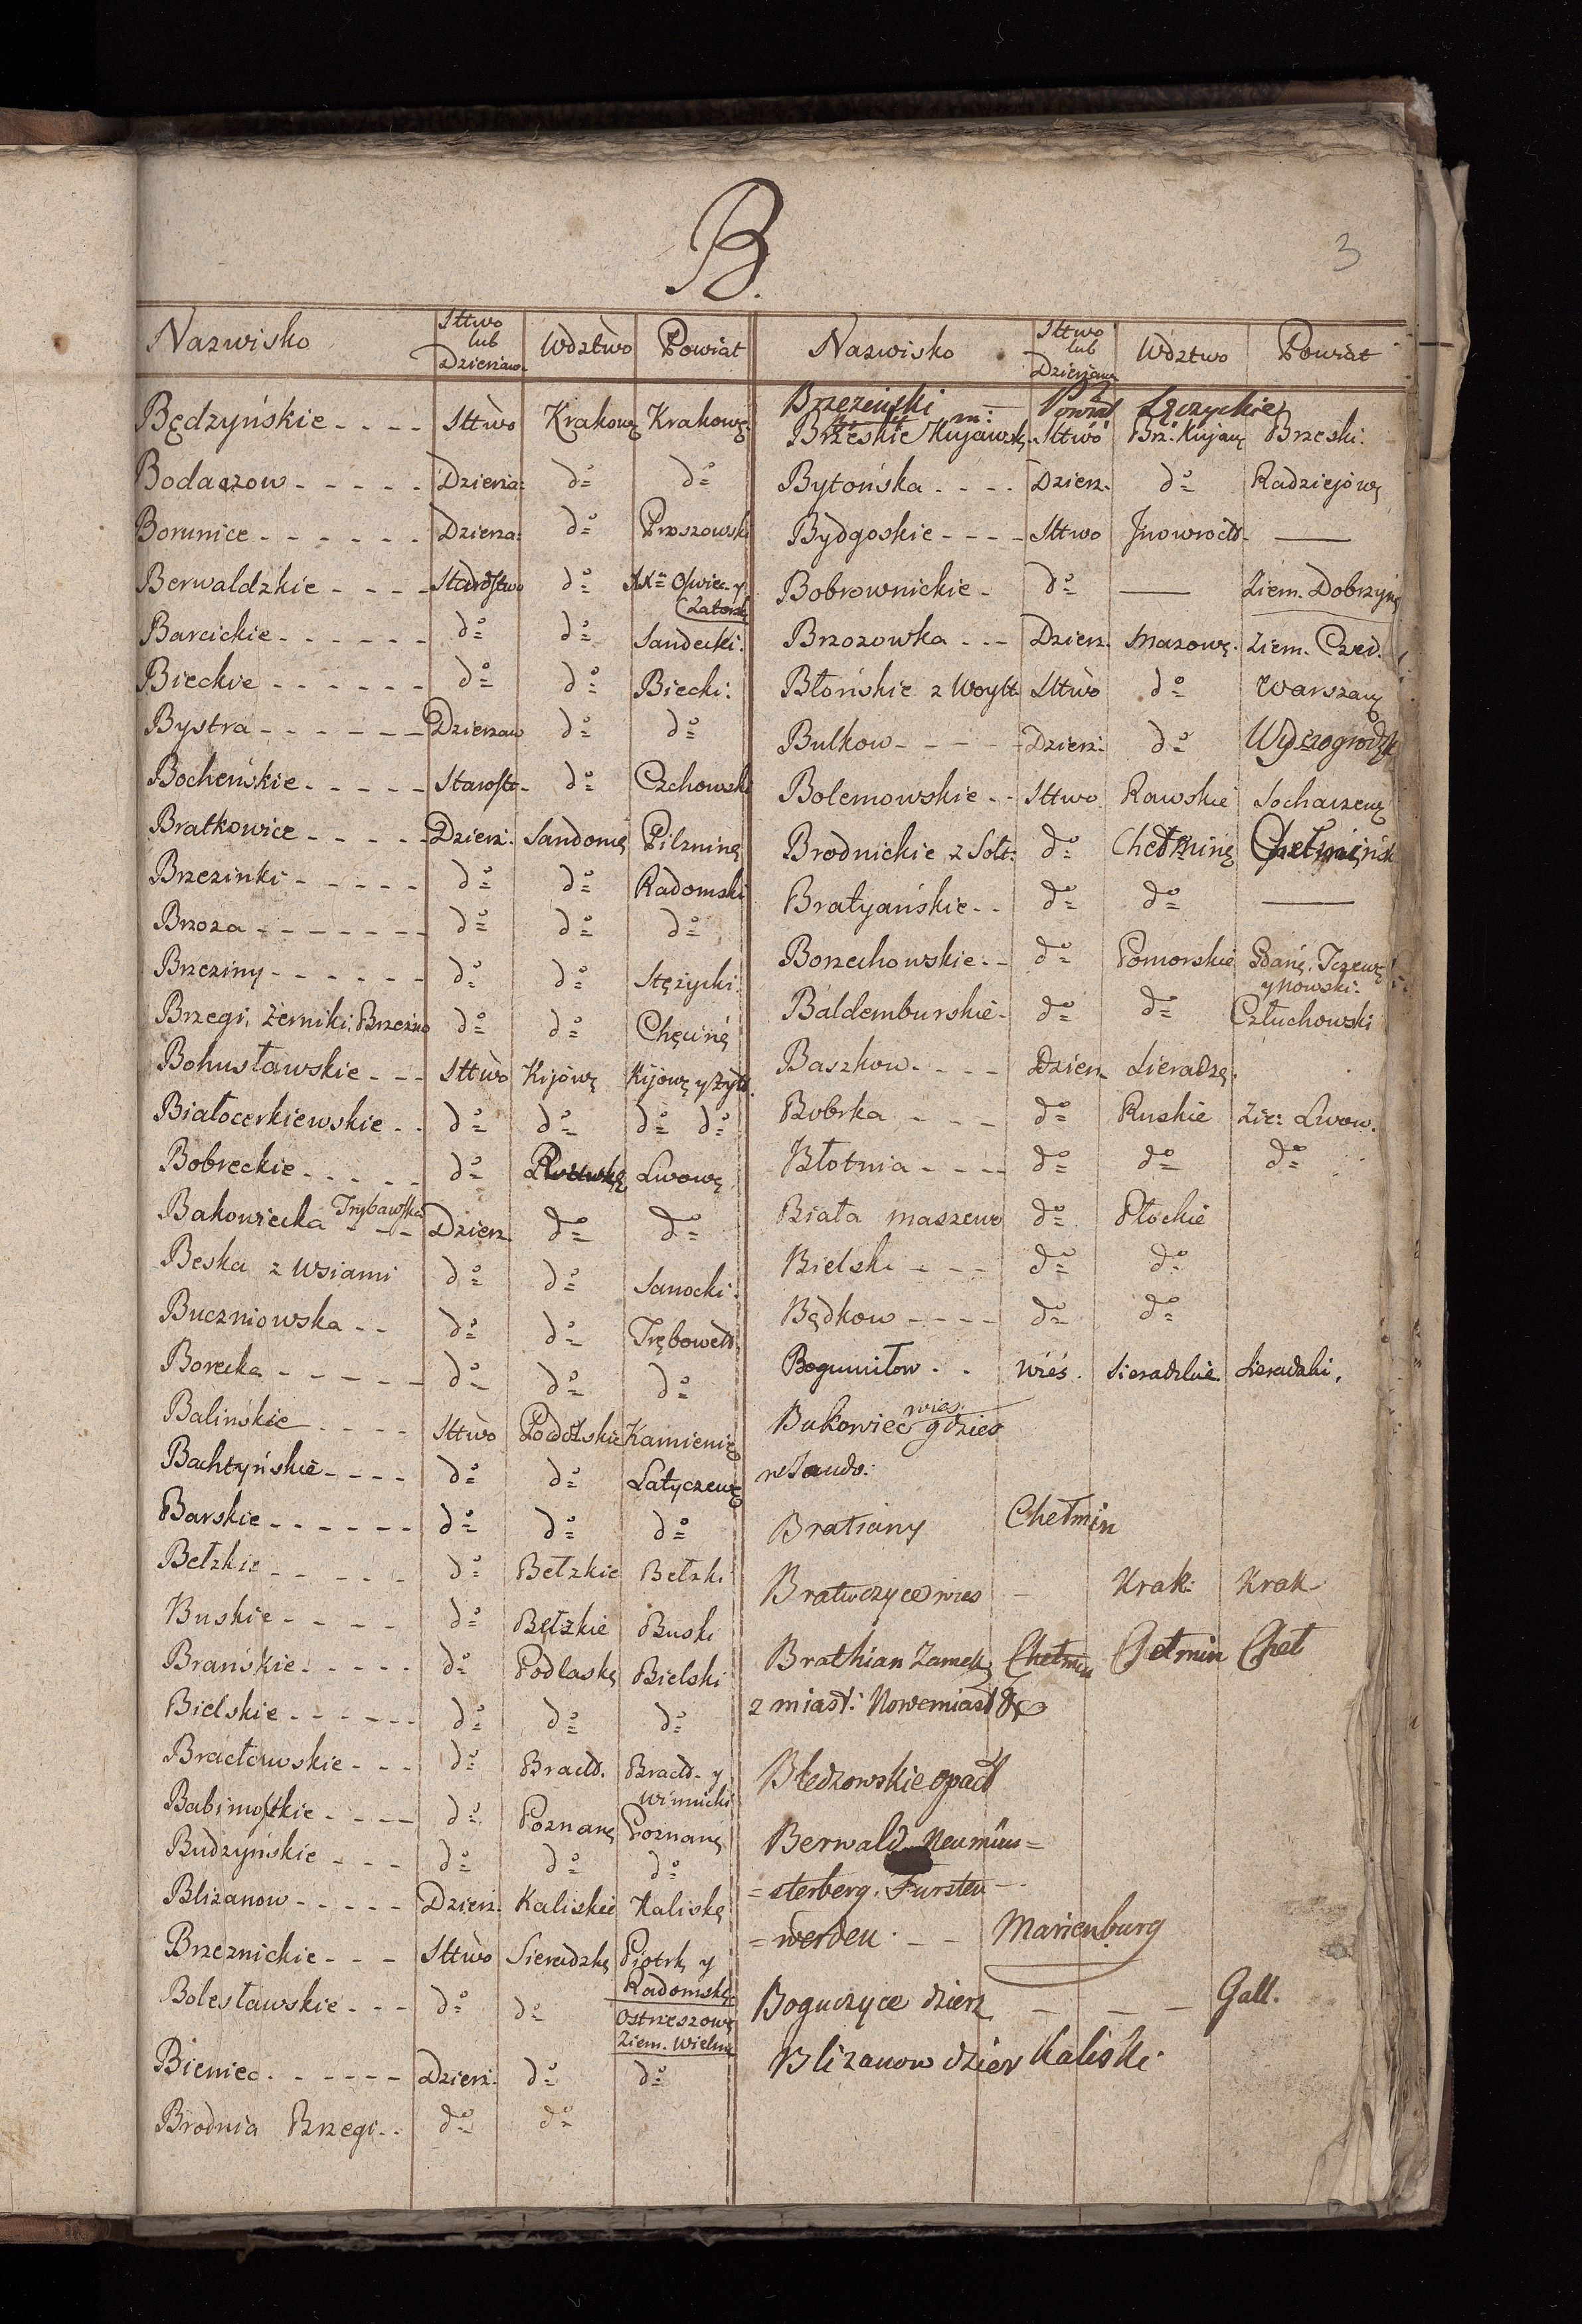 B.
3
Nazwisko Sttwo lub Dzierżaw. Wdztwo Powiat
Będzyńskie - - - - Sttwo Krakowę Krakowę
Bodaczow - - - - - Dzierża: dº dº
Borunice - - - - - - Dzierża: dº Proszowski
Berwaldzkie - - - - Starostwo dº Xx= Oswiec. y Zatorsk
Barcickie - - - - - - dº dº Sandecki:
Bieckie - - - - - - dº dº Biecki:
Bystra - - - - - - Dzierzaw dº dº
Bocheńskie - - - - - Starost- dº Czchowski
Bratkowice - - - - - Dzierż. Sandomę Pilzninę
Brzezinki - - - - - dº dº Radomski
Brzoza - - - - - - - dº dº dº
Brzeziny - - - - - - dº dº Stężycki:
Brzegi, Żerniki, Brzezno dº dº Chęcinę
Bohusławskie - - - Sttwo Kijowę Kijowę y Żyto.
Białocerkiewskie - - dº dº dº dº
Bobreckie - - - - - dº Lwowę
Bakowiecka Trybawska - - Dzierz dº dº
Beska z Wsiami dº dº Sanocki:
Buczniowska - - dº dº Tręboweld.
Borecka - - - - - - dº dº dº
Balinskie - - - - Sttwo Podolskie Kamienię
Bachtyńskie - - - - dº dº Latyczewę
Barskie - - - - - - dº dº dº
Bełzkie - - - - - dº Bełzkie Bełzki
Buskie - - - - dº Bełzkie Buski
Brańskie - - - - - dº Podlaskę Bielski
Bielskie - - - - - - dº dº dº
Bracławskie - - - dº Bracld. Bracld. y Winnicki
Babimostkie - - - - dº Poznanę Poznanę
Budzyńskie - - - dº dº dº
Blizanow - - - - - Dzierż. Kaliskie Kaliskę
Brzeznickie - - - Sttwo Sieradzkę Piotrkę y Radomskę
Bolesławskie - - - dº dº Ostrzeszowę Ziem. Wielun
Bieniec - - - - - - Dzierż. dº dº
Brodnia Brzegi - - dº dº
Nazwisko Sttwo lub Dzierżawa Wdztwo Powiat
Brzezinski m: Powiat Łęczyckie
Brzeskie Kujawskę Sttwo Brz: Kujawę Brzeski:
Bytońska - - - - Dzierz. dº Radziejowę
Bydgoskie - - - - Sttwo Jnowrocld. —
Bobrownickie - dº — Ziem. Dobrzynę
Brzozowka - - - Dzierz. Mazowę. Ziem. Czer.
Błońskie z Woytt Sttwo dº Warszawę
Bulkow - - - - - Dzierż: dº Wyszogrodzk
Bolemowskie - - Sttwo Rawskie Sochaczewę
Brodnickie z Sołt: dº Chełminę Chełmińsk
Bratyańskie - - dº dº —
Borzechowskie - - dº Pomorskie Gdanę, Tczewę y Nowski:
Baldemburskie - dº dº Człuchowski
Baszkow - - - - Dzierz Sieradzę.
Bobrka - - - dº Ruskie Zie: Lwow.
Błotnia - - - - dº dº dº
Biała Maszewo dº Płockie
Bielski - - - dº dº
Będkow - - - - dº dº
Bogumiłow - - Wieś. Sieradzkie. Sieradzki.
Bukowiec wies gdzies
w Sando:
Bratiany Chełmin
Bratuczyce wies — Krak: Krak
Brathian Zamek Chełmin Chełmin Cheł
z miast: Nowemiast &
Błedzowskie opact
Berwald Neumün=
=sterberg. Fursten -
=werden - - Marienburg
Boguczyce dzierz — — — Gall.
Blizanow dzier Kaliski